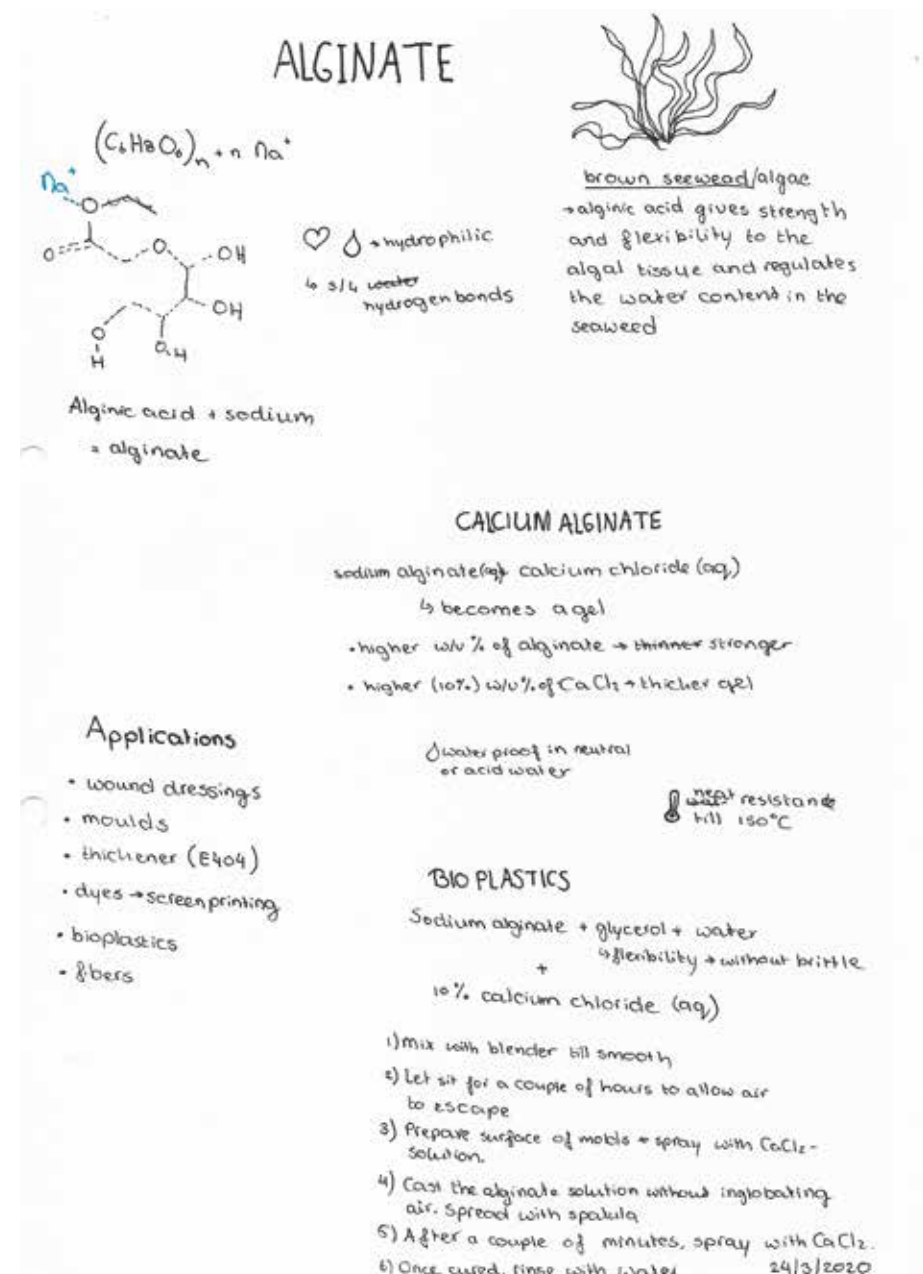 ALGINATE
(C6H8O6)n + n Na+
Na+
O
O
O
OH
OH
O
H
O H
♡ 💧 → hydrophilic
↳ 3/4 water
hydrogen bonds
brown seewead/algae
→ alginic acid gives strength
and flexibility to the
algal tissue and regulates
the water content in the
seaweed
Alginic acid + sodium
= alginate
CALCIUM ALGINATE
sodium alginate (aq) + calcium chloride (aq)
↳ becomes a gel
• higher w/v % of alginate → thinner stronger
• higher (10%) w/v % of CaCl2 → thicker gel
water proof in neutral
or acid water
heat resistande
till 150°C
Applications
• wound dressings
• moulds
• thichener (E404)
• dyes → screenprinting
• bioplastics
• fibers
BIO PLASTICS
Sodium alginate + glycerol + water
↳ flexibility → without brittle
+
10% calcium chloride (aq)
1) mix with blender till smooth
2) Let sit for a couple of hours to allow air
to escape
3) Prepare surface of molds + spray with CaCl2-
solution.
4) Cast the alginate solution without inglobating
air. Spread with spatula
5) After a couple of minutes, spray with CaCl2.
6) Once cured, rinse with water
24/3/2020